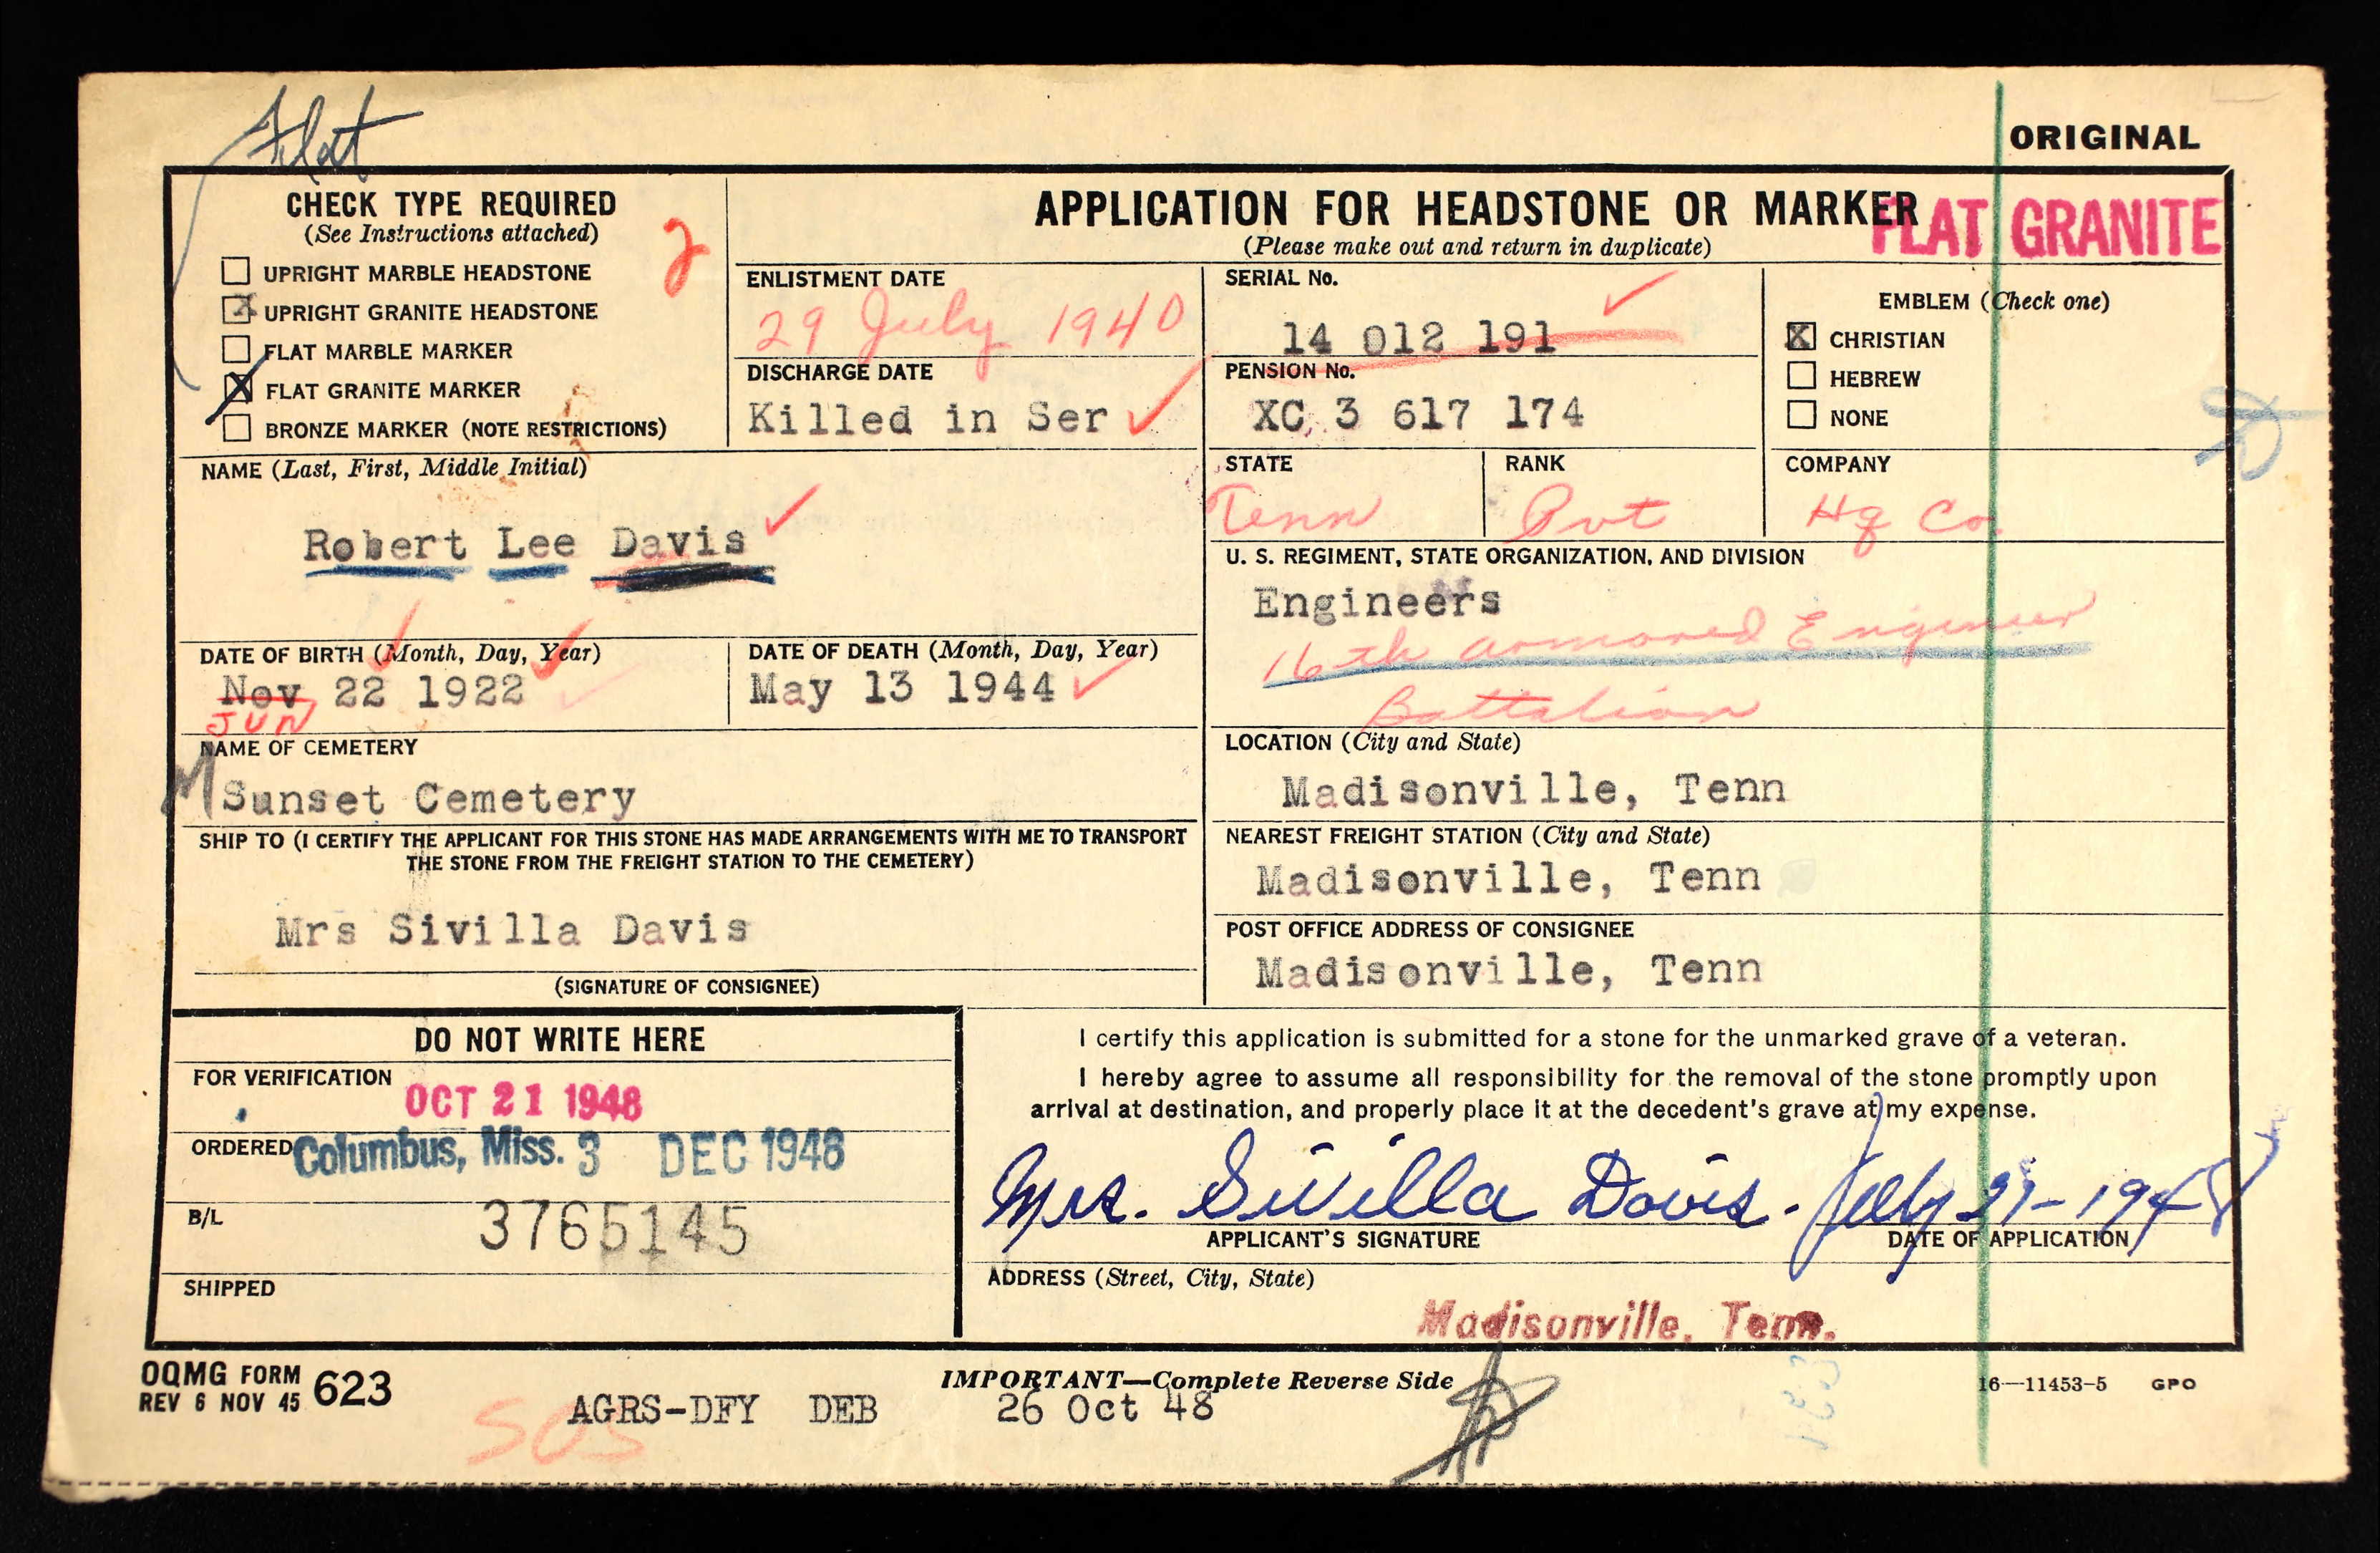 Flat
ORIGINAL
CHECK TYPE REQUIRED
(See Instructions attached)
2
UPRIGHT MARBLE HEADSTONE
X UPRIGHT GRANITE HEADSTONE
FLAT MARBLE MARKER
X FLAT GRANITE MARKER
BRONZE MARKER (NOTE RESTRICTIONS)
APPLICATION FOR HEADSTONE OR MARKER
FLAT GRANITE
(Please make out and return in duplicate)
ENLISTMENT DATE
29 July 1940
SERIAL No.
14 012 191
EMBLEM (Check one)
X CHRISTIAN
HEBREW
NONE
DISCHARGE DATE
Killed in Ser
PENSION No.
XC 3 617 174
NAME (Last, First, Middle Initial)
Robert Lee Davis
STATE
Tenn
RANK
Pvt
COMPANY
Hq Co.
U. S. REGIMENT, STATE ORGANIZATION, AND DIVISION
Engineers
16th Armored Engineer
Battalion
DATE OF BIRTH (Month, Day, Year)
Nov 22 1922
JUN
DATE OF DEATH (Month, Day, Year)
May 13 1944
NAME OF CEMETERY
Sunset Cemetery
LOCATION (City and State)
Madisonville, Tenn
SHIP TO (I CERTIFY THE APPLICANT FOR THIS STONE HAS MADE ARRANGEMENTS WITH ME TO TRANSPORT
THE STONE FROM THE FREIGHT STATION TO THE CEMETERY)
Mrs Sivilla Davis
(SIGNATURE OF CONSIGNEE)
NEAREST FREIGHT STATION (City and State)
Madisonville, Tenn
POST OFFICE ADDRESS OF CONSIGNEE
Madisonville, Tenn
DO NOT WRITE HERE
FOR VERIFICATION
OCT 21 1948
ORDERED
Columbus, Miss. 3 DEC 1948
B/L
3765145
SHIPPED
I certify this application is submitted for a stone for the unmarked grave of a veteran.
I hereby agree to assume all responsibility for the removal of the stone promptly upon
arrival at destination, and properly place it at the decedent's grave at my expense.
Mrs. Sivilla Davis. July 21-1948
APPLICANT'S SIGNATURE
DATE OF APPLICATION
ADDRESS (Street, City, State)
Madisonville, Tenn.
OQMG FORM 623
REV 6 NOV 45
IMPORTANT—Complete Reverse Side
16—11453-5 GPO
SOS
AGRS-DFY DEB 26 Oct 48